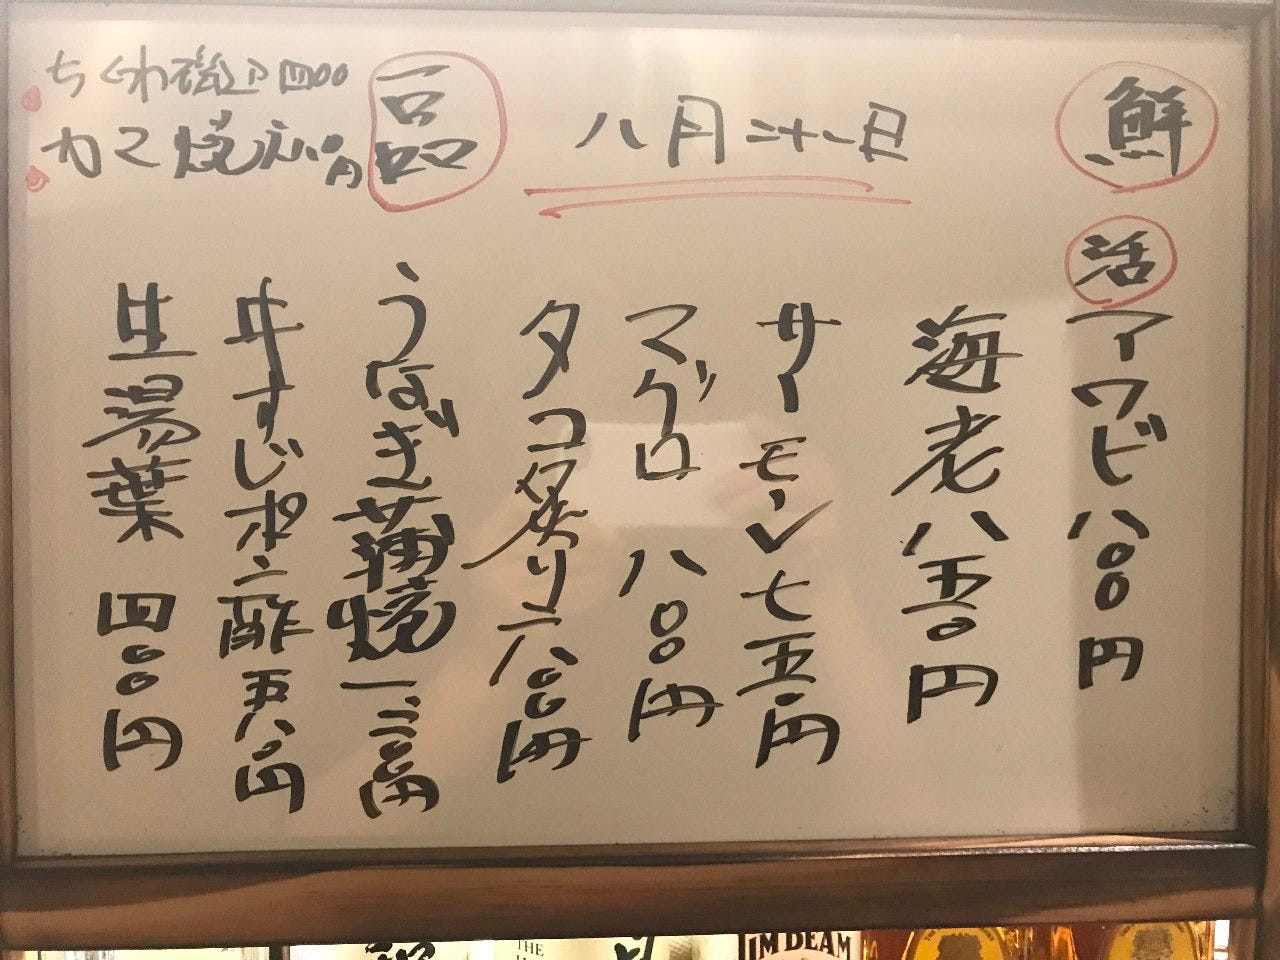 鮮
八月二十一日
一品
ちくわ磯辺四〇〇
カマ焼
活アワビ八〇〇円
海老八五〇円
サーモン七五〇円
マグロ 八〇〇円
タコ炙り六〇〇円
うなぎ蒲焼一三〇〇円
牛すじポン酢五八〇円
生湯葉 四〇〇円
THE
JIM BEAM